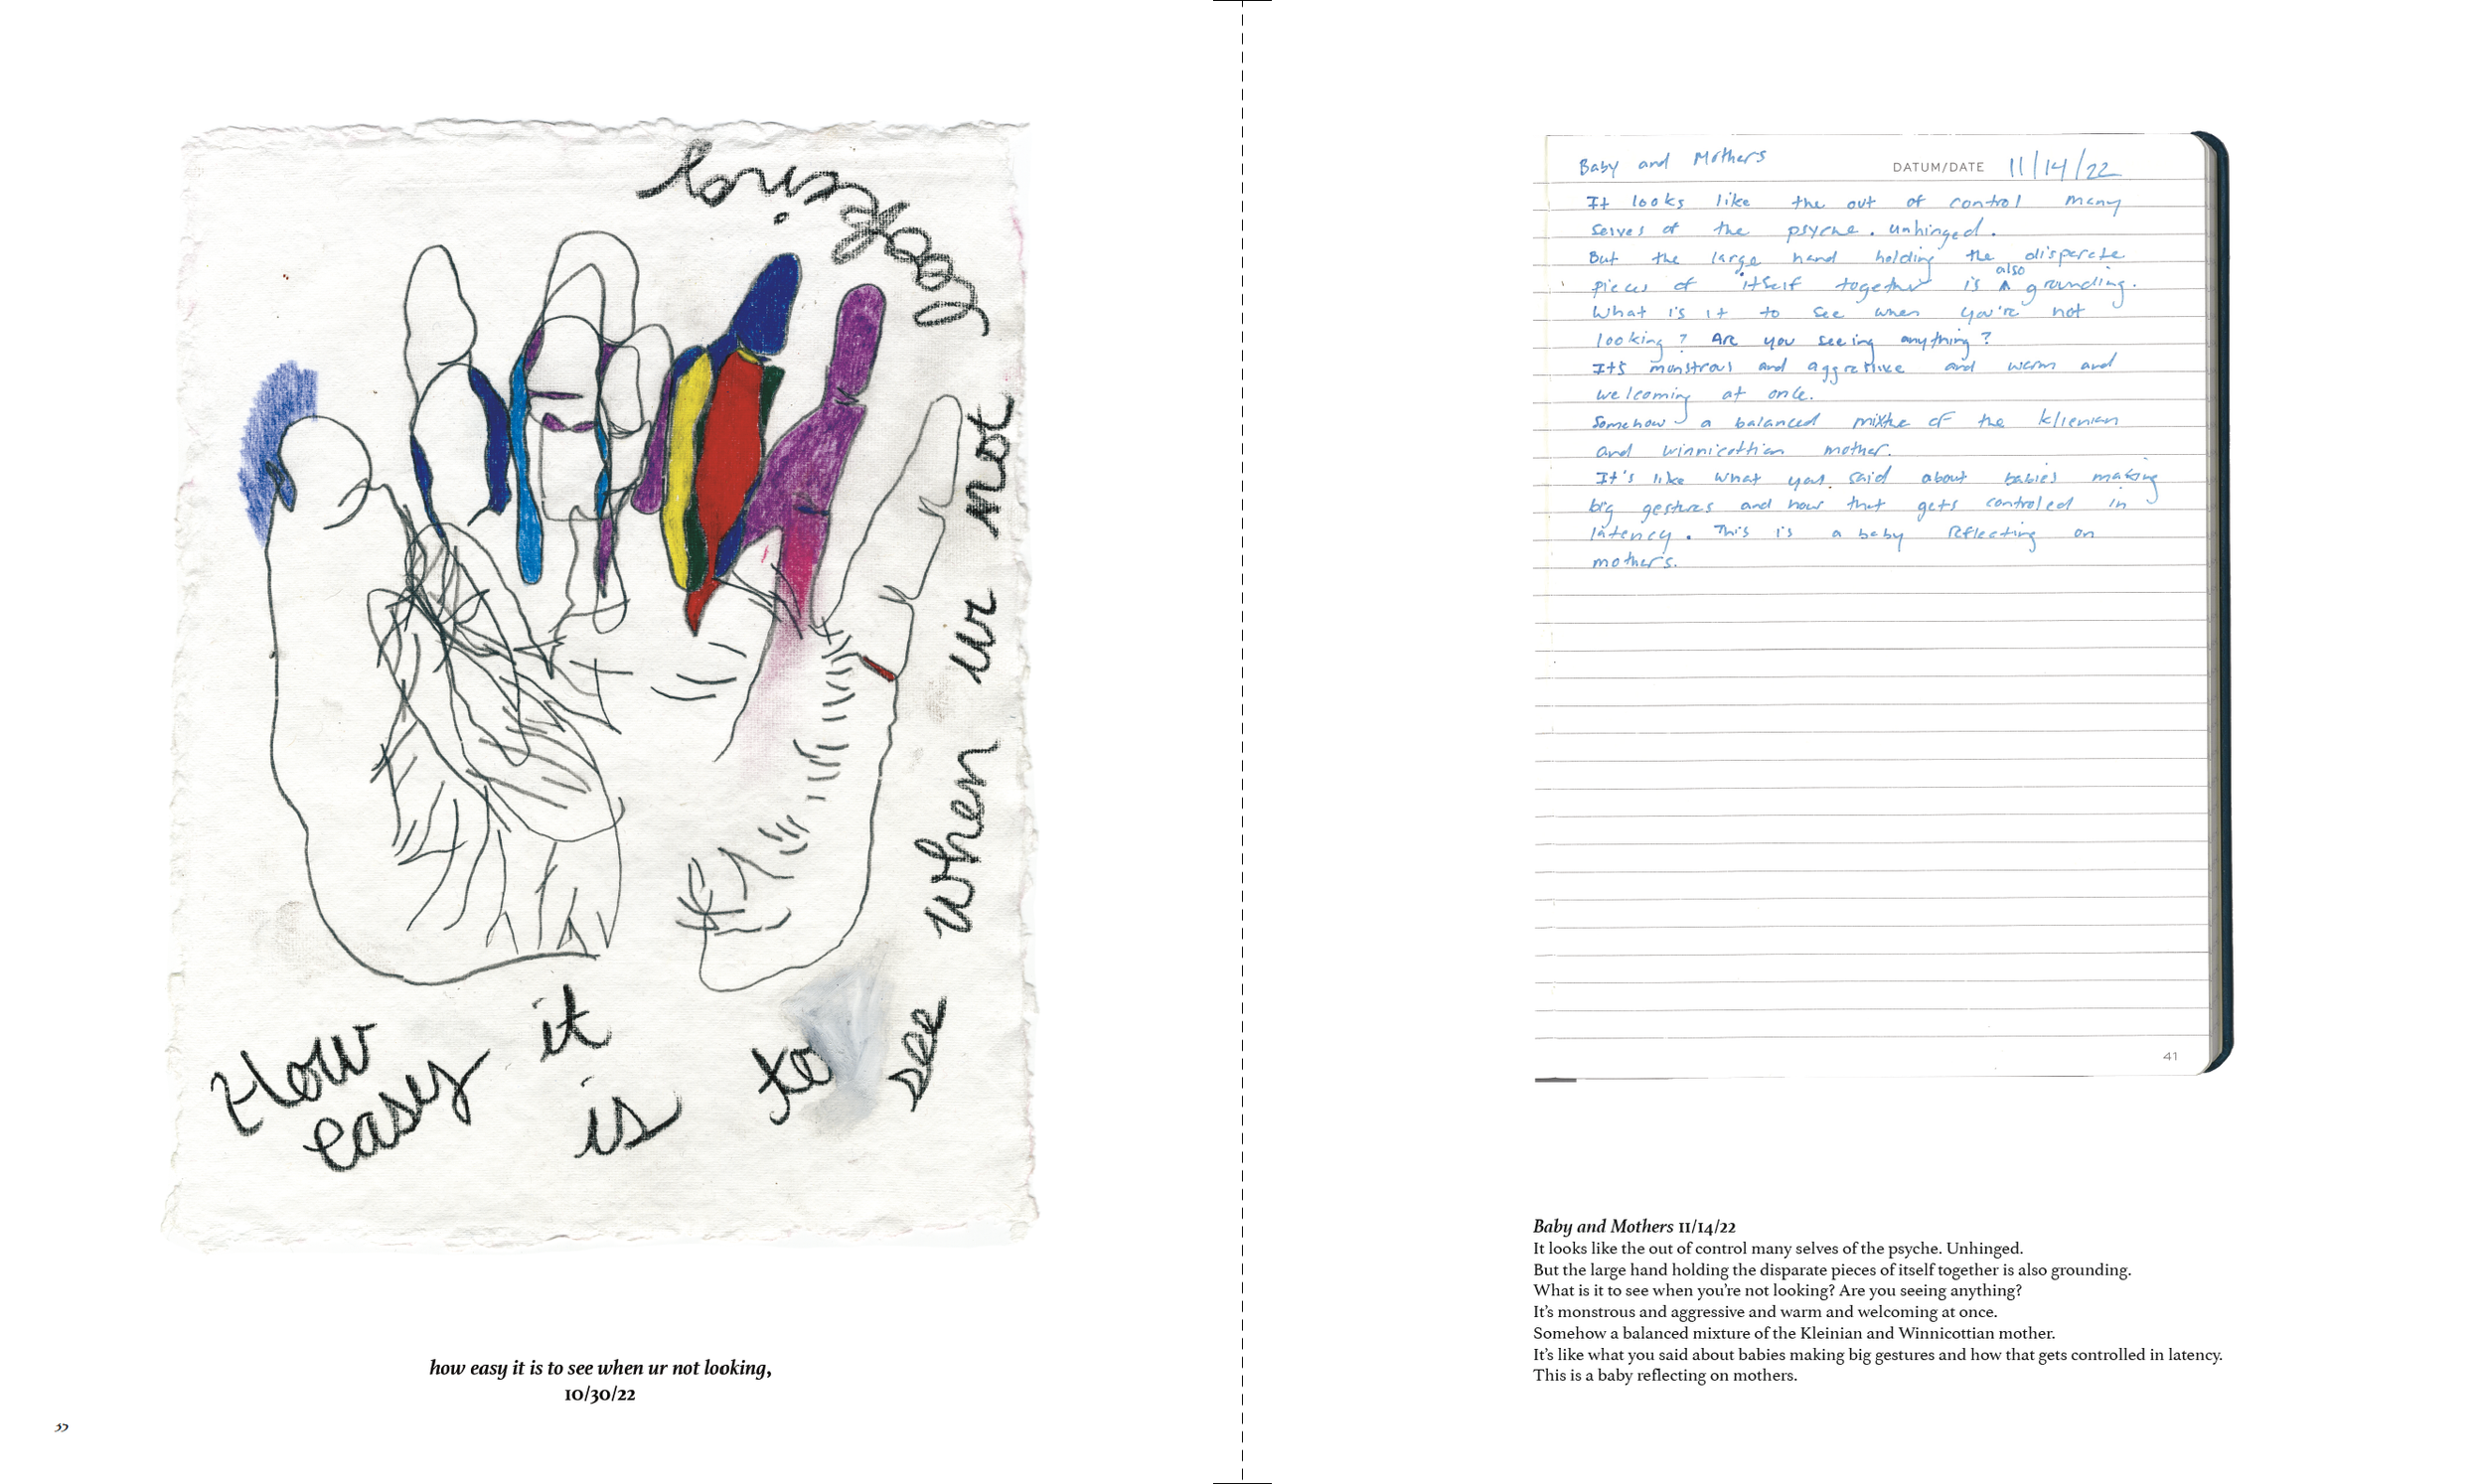 How
easy
it
is
to
see
when ur not
looking
how easy it is to see when ur not looking,
10/30/22
33
Baby and Mothers
DATUM/DATE 11/14/22
It looks like the out of control many
selves of the psyche. unhinged.
But the large hand holding the disparate
also
pieces of itself together is ^ grounding.
What is it to see when you're not
looking? Are you seeing anything?
It's monstrous and aggressive and warm and
welcoming at once.
Somehow a balanced mixture of the klienian
and winnicottian mother.
It's like what you said about babies making
big gestures and how that gets controled in
latency. This is a baby reflecting on
mothers.
41
Baby and Mothers 11/14/22
It looks like the out of control many selves of the psyche. Unhinged.
But the large hand holding the disparate pieces of itself together is also grounding.
What is it to see when you're not looking? Are you seeing anything?
It's monstrous and aggressive and warm and welcoming at once.
Somehow a balanced mixture of the Kleinian and Winnicottian mother.
It's like what you said about babies making big gestures and how that gets controlled in latency.
This is a baby reflecting on mothers.